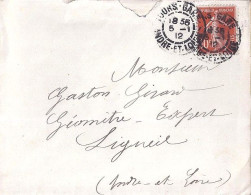 TOURS-GARE
18 35
5 - 1
12
INDRE-ET-LOIRE
Monsieur
Gaston Girard
Géomètre-Expert
Ligueil
(Indre et Loire)